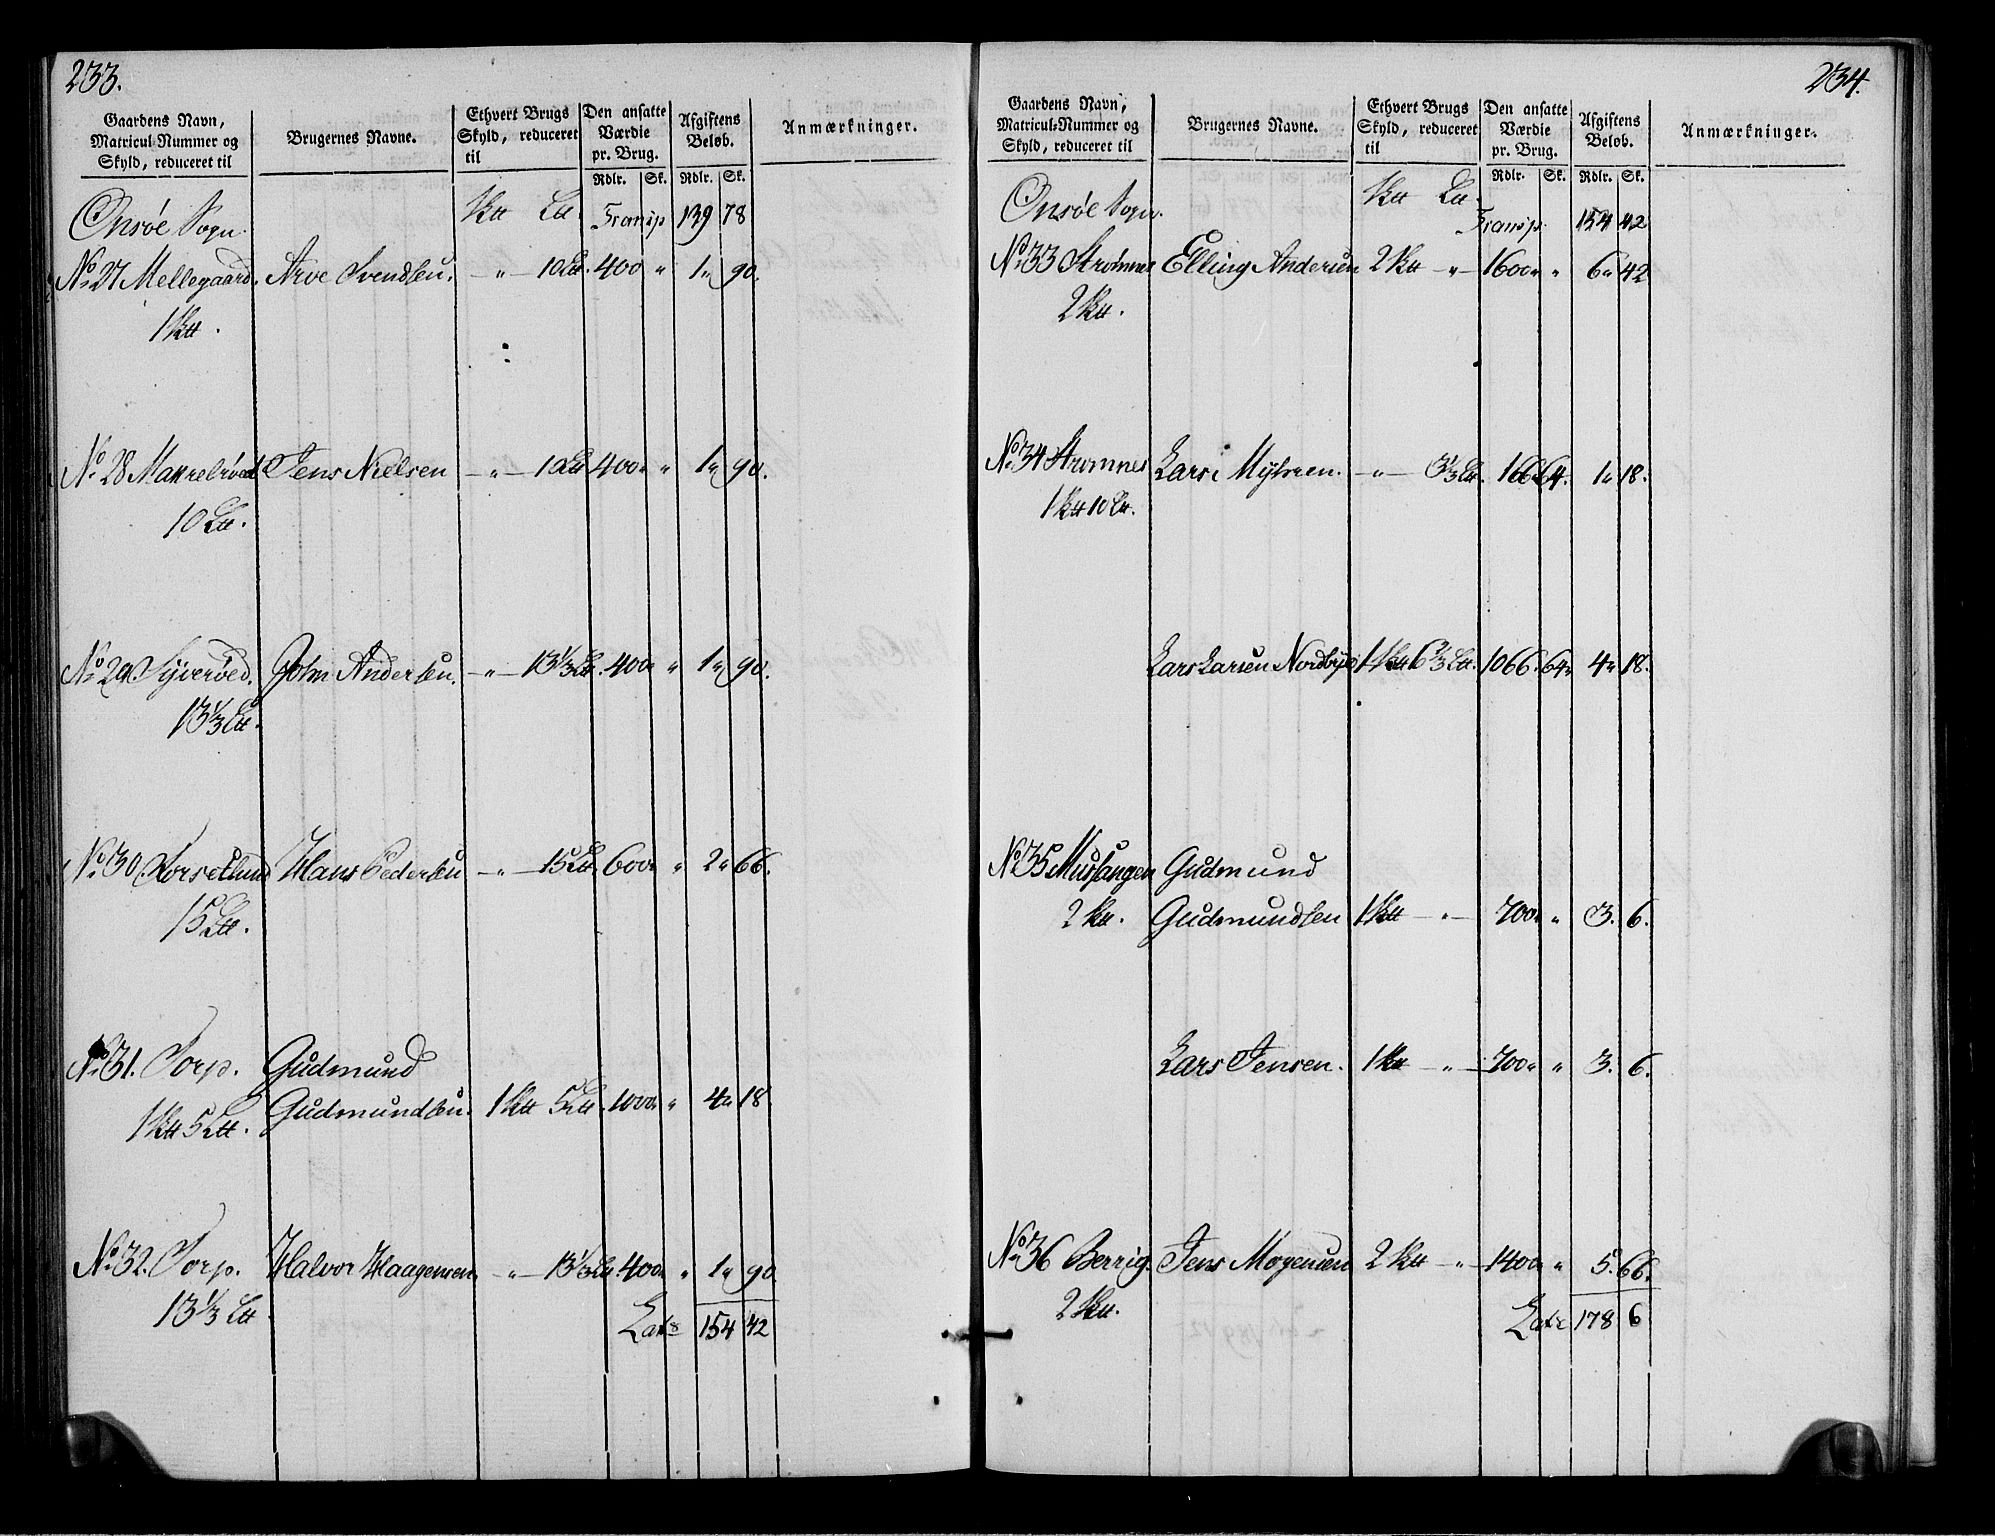 233.
Gaardens Navn, Matricul-Nummer og Skyld, reduceret til | Brugernes Navne. | Ethvert Brugs Skyld, reduceret til | Den ansatte Værdie pr. Brug. | Afgiftens Beløb. | Anmærkninger.
Rdlr. | Sk. | Rdlr. | Sk.
Onsøe Sogn. | Skƚƚ Lƚƚ. | Transp | 139 | 78
No. 27 Mellegaard. | Arve Svendsen. | — „ — 10 Lƚƚ. | 400 | „ | 1„ | 90.
1 Skƚƚ.
No. 28 Makrelrøed | Jens Nielsen | — „ — 10 Lƚƚ | 400„ | „ | 1„ | 90.
10 Lƚƚ.
No. 29 Syverøed. | John Andersen. | — „ — 13 1/3 Lƚƚ. | 400„ | „ | 1„ | 90.
13 1/3 Lƚƚ.
No. 30. Torsetlund | Hans Pedersen | — „ — 15 Lƚƚ. | 600„ | „ | 2„ | 66.
15 Lƚƚ.
No. 31. Torp. | Gudmund
1 Skƚƚ 5 Lƚƚ. | Gudmundsen. | 1 Skƚƚ 5 Lƚƚ. | 1000„ | „ | 4„ | 18
No. 32. Torp. | Halvor Haagensen | — „ — 13 1/3 Lƚƚ. | 400„ | „ | 1„ | 90
13 1/3 Lƚƚ
Lats | 154 | 42
234.
Gaardens Navn, Matricul-Nummer og Skyld, reduceret til | Brugernes Navne. | Ethvert Brugs Skyld, reduceret til | Den ansatte Værdie pr. Brug. | Afgiftens Beløb. | Anmærkninger.
Rdlr. | Sk. | Rdlr. | Sk.
Onsøe Sogn. | Skƚƚ Lƚƚ. | Transp. | 154 | 42
No. 33 Strømnes | Elling Andersen | 2 Skƚƚ — „ — | 1600„ | „ | 6„ | 42
2 Skƚƚ.
No. 34 Strømnes | Lars i Myhren. | — „ — 3 1/3 Lƚƚ. | 166 | 64. | 1„ | 18.
1 Skƚƚ 10 Lƚƚ.
Lars Larsen Nordbye | 1 Skƚƚ 6 2/3 Lƚƚ. | 1066. | 64„ | 4„ | 18.
No. 35 Musangen | Gudmund
2 Skƚƚ. | Gudmundsen | 1 Skƚƚ — „ — | 700„ | „ | 3. | 6.
Lars Jensen. | 1 Skƚƚ — „ — | 700„ | „ | 3. | 6.
No. 36 Berrig. | Jens Mogensen | 2 Skƚƚ — „ — | 1400„ | „ | 5. | 66.
2 Skƚƚ.
Late | 178 | 6